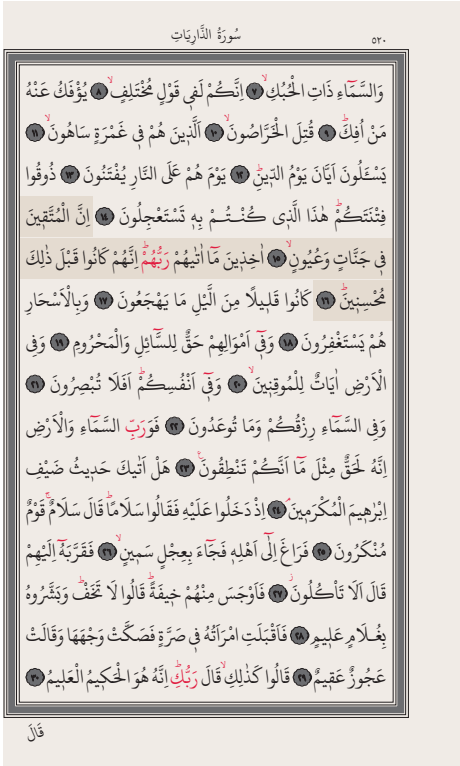 سُورَةُ الذَّارِيَاتِ ٥٢٠
وَالسَّمَٓاءِ ذَاتِ الْحُبُكِۙ ﴿٧﴾ اِنَّكُمْ لَفٖي قَوْلٍ مُخْتَلِفٍۙ ﴿٨﴾ يُؤْفَكُ عَنْهُ
مَنْ اُفِكَؕ ﴿٩﴾ قُتِلَ الْخَرَّاصُونَۙ ﴿١٠﴾ اَلَّذٖينَ هُمْ فٖي غَمْرَةٍ سَاهُونَۙ ﴿١١﴾
يَسْـَٔلُونَ اَيَّانَ يَوْمُ الدّٖينِؕ ﴿١٢﴾ يَوْمَ هُمْ عَلَى النَّارِ يُفْتَنُونَ ﴿١٣﴾ ذُوقُوا
فِتْنَتَكُمْؕ هٰذَا الَّذٖي كُنْتُمْ بِهٖ تَسْتَعْجِلُونَ ﴿١٤﴾ اِنَّ الْمُتَّقٖينَ
فٖي جَنَّاتٍ وَعُيُونٍۙ ﴿١٥﴾ اٰخِذٖينَ مَٓا اٰتٰيهُمْ رَبُّهُمْؕ اِنَّهُمْ كَانُوا قَبْلَ ذٰلِكَ
مُحْسِنٖينَؕ ﴿١٦﴾ كَانُوا قَلٖيلًا مِنَ الَّيْلِ مَا يَهْجَعُونَ ﴿١٧﴾ وَبِالْاَسْحَارِ
هُمْ يَسْتَغْفِرُونَ ﴿١٨﴾ وَفٖٓي اَمْوَالِهِمْ حَقٌّ لِلسَّٓائِلِ وَالْمَحْرُومِ ﴿١٩﴾ وَفِي
الْاَرْضِ اٰيَاتٌ لِلْمُوقِنٖينَۙ ﴿٢٠﴾ وَفٖٓي اَنْفُسِكُمْؕ اَفَلَا تُبْصِرُونَ ﴿٢١﴾
وَفِي السَّمَٓاءِ رِزْقُكُمْ وَمَا تُوعَدُونَ ﴿٢٢﴾ فَوَرَبِّ السَّمَٓاءِ وَالْاَرْضِ
اِنَّهُ لَحَقٌّ مِثْلَ مَٓا اَنَّكُمْ تَنْطِقُونَ۟ ﴿٢٣﴾ هَلْ اَتٰيكَ حَدٖيثُ ضَيْفِ
اِبْرٰهٖيمَ الْمُكْرَمٖينَۘ ﴿٢٤﴾ اِذْ دَخَلُوا عَلَيْهِ فَقَالُوا سَلَامًاؕ قَالَ سَلَامٌۚ قَوْمٌ
مُنْكَرُونَ ﴿٢٥﴾ فَرَاغَ اِلٰٓى اَهْلِهٖ فَجَٓاءَ بِعِجْلٍ سَمٖينٍۙ ﴿٢٦﴾ فَقَرَّبَهُٓ اِلَيْهِمْ
قَالَ اَلَا تَأْكُلُونَؗ ﴿٢٧﴾ فَاَوْجَسَ مِنْهُمْ خٖيفَةًؕ قَالُوا لَا تَخَفْؕ وَبَشَّرُوهُ
بِغُلَامٍ عَلٖيمٍ ﴿٢٨﴾ فَاَقْبَلَتِ امْرَاَتُهُ فٖي صَرَّةٍ فَصَكَّتْ وَجْهَهَا وَقَالَتْ
عَجُوزٌ عَقٖيمٌ ﴿٢٩﴾ قَالُوا كَذٰلِكِۙ قَالَ رَبُّكِؕ اِنَّهُ هُوَ الْحَكٖيمُ الْعَلٖيمُ ﴿٣٠﴾
قَالَ